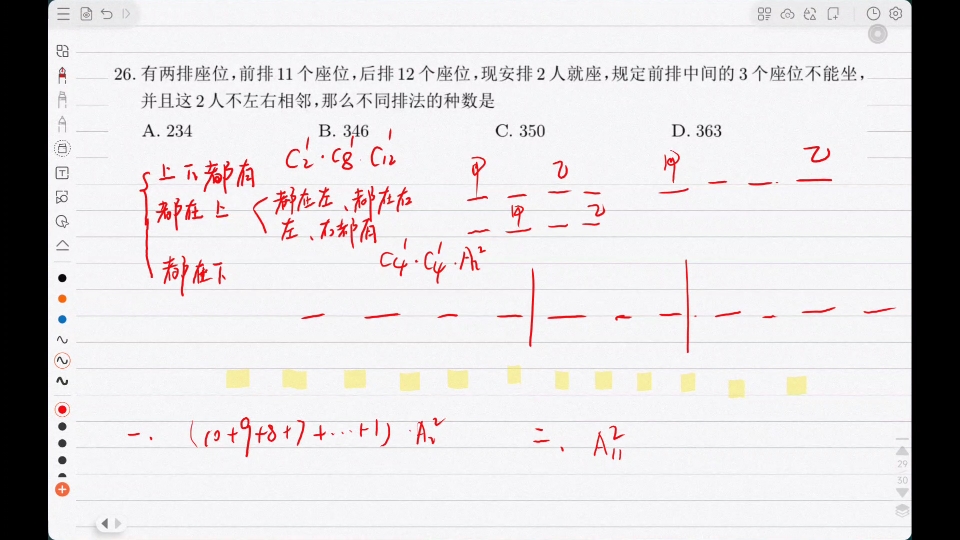 26. 有两排座位,前排11个座位,后排12个座位,现安排2人就座,规定前排中间的3个座位不能坐,
并且这2人不左右相邻,那么不同排法的种数是
A. 234 B. 346 C. 350 D. 363
上下都有 C₂¹·C₈¹·C₁₂¹
甲 乙 甲 乙
都在上 都在左、都在右
左、右都有
甲 乙
都在下 C₄¹·C₄¹·A₂²
一. (10+9+8+7+…+1)·A₂² 二. A₁₁²
29
30